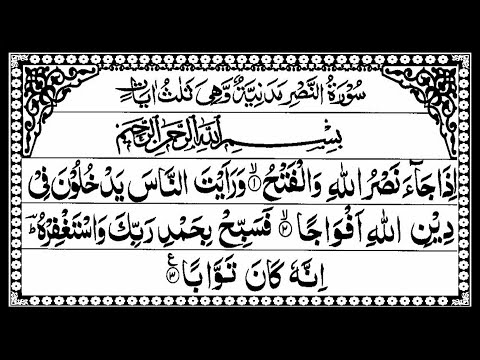 سُوْرَةُ النَّصْرِ مَدَنِيَّةٌ وَّهِيَ ثَلٰثُ اٰيَاتٍ
بِسْمِ اللهِ الرَّحْمٰنِ الرَّحِيْمِ
اِذَا جَآءَ نَصْرُ اللهِ وَالْفَتْحُ ۙ‏﴿۱﴾ وَرَاَيْتَ النَّاسَ يَدْخُلُوْنَ فِيْ
دِيْنِ اللهِ اَفْوَاجًا ۙ‏﴿۲﴾ فَسَبِّحْ بِحَمْدِ رَبِّكَ وَاسْتَغْفِرْهُ ؕ
اِنَّهٗ كَانَ تَوَّابًا ﴿۳﴾ ع